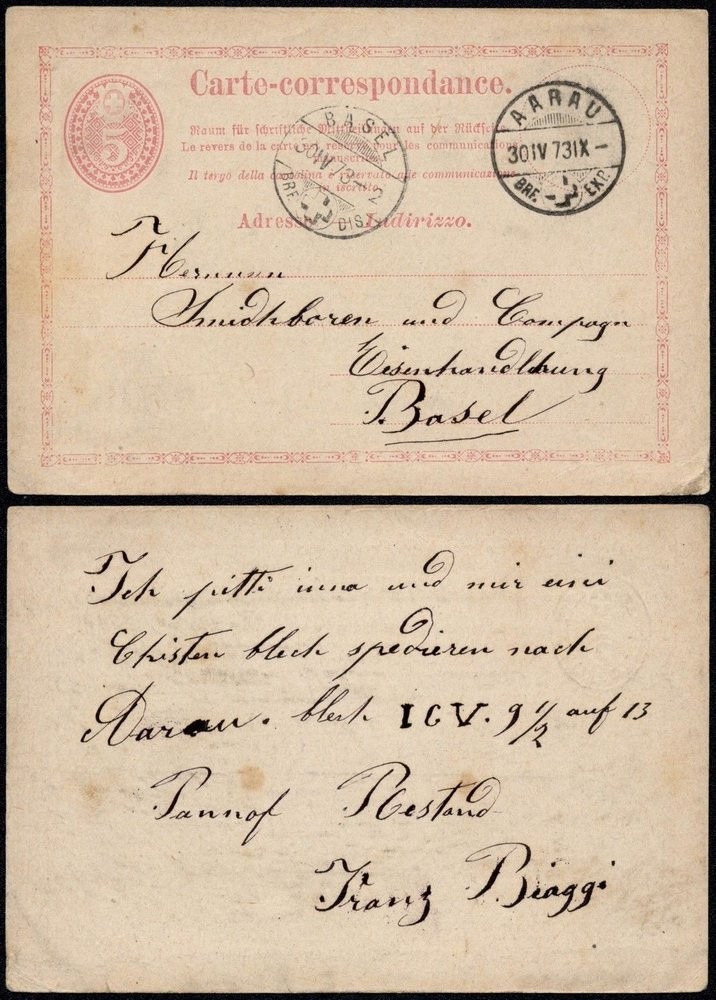 Carte-correspondance.
5
Raum für schriftliche Mittheilungen auf der Rückseite
Le revers de la carte est réservé pour les communications
manuscrites
Il tergo della cartolina è riservato alle communicazione
in iscritto.
Adresse Indirizzo.
BASEL
30 IV 73
BRF. DIST.
AARAU
30 IV 73 IX -
BRF. EXP.
Herrnnen
Smidhboren und Compagn
Eisenhandlkung
Basel
Ich pitti inna und mir eini
Chisten blech spedieren nach
Aarau. blech IGV. 9 1/2 auf 13
Pannof Restand
Franz Biaggi